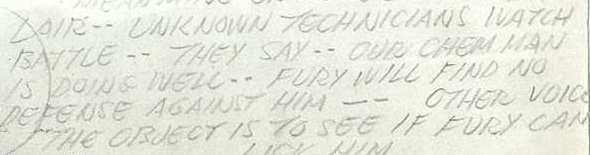 LAIR -- UNKNOWN TECHNICIANS WATCH
BATTLE -- THEY SAY -- OUR CHEM MAN
IS DOING WELL -- FURY WILL FIND NO
DEFENSE AGAINST HIM -- OTHER VOICE
THE OBJECT IS TO SEE IF FURY CAN
LICK HIM